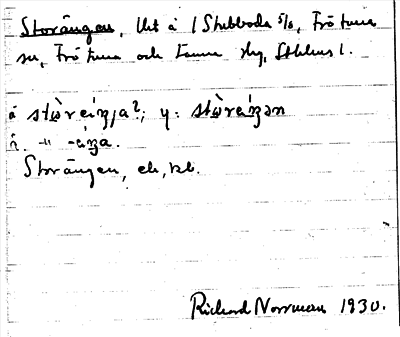 Storängen, Urt å 1 Stubboda s/o, Frötuna
sn, Frötuna och Länna skg, Sthlms l.
å stɷ̀reiŋja?; y: stɷ̀reiŋən
ä. -"- -eiŋa.
Storängen, ek, kb.
Richard Norrman 1930.